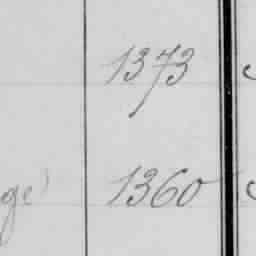 1373
ge) 1360